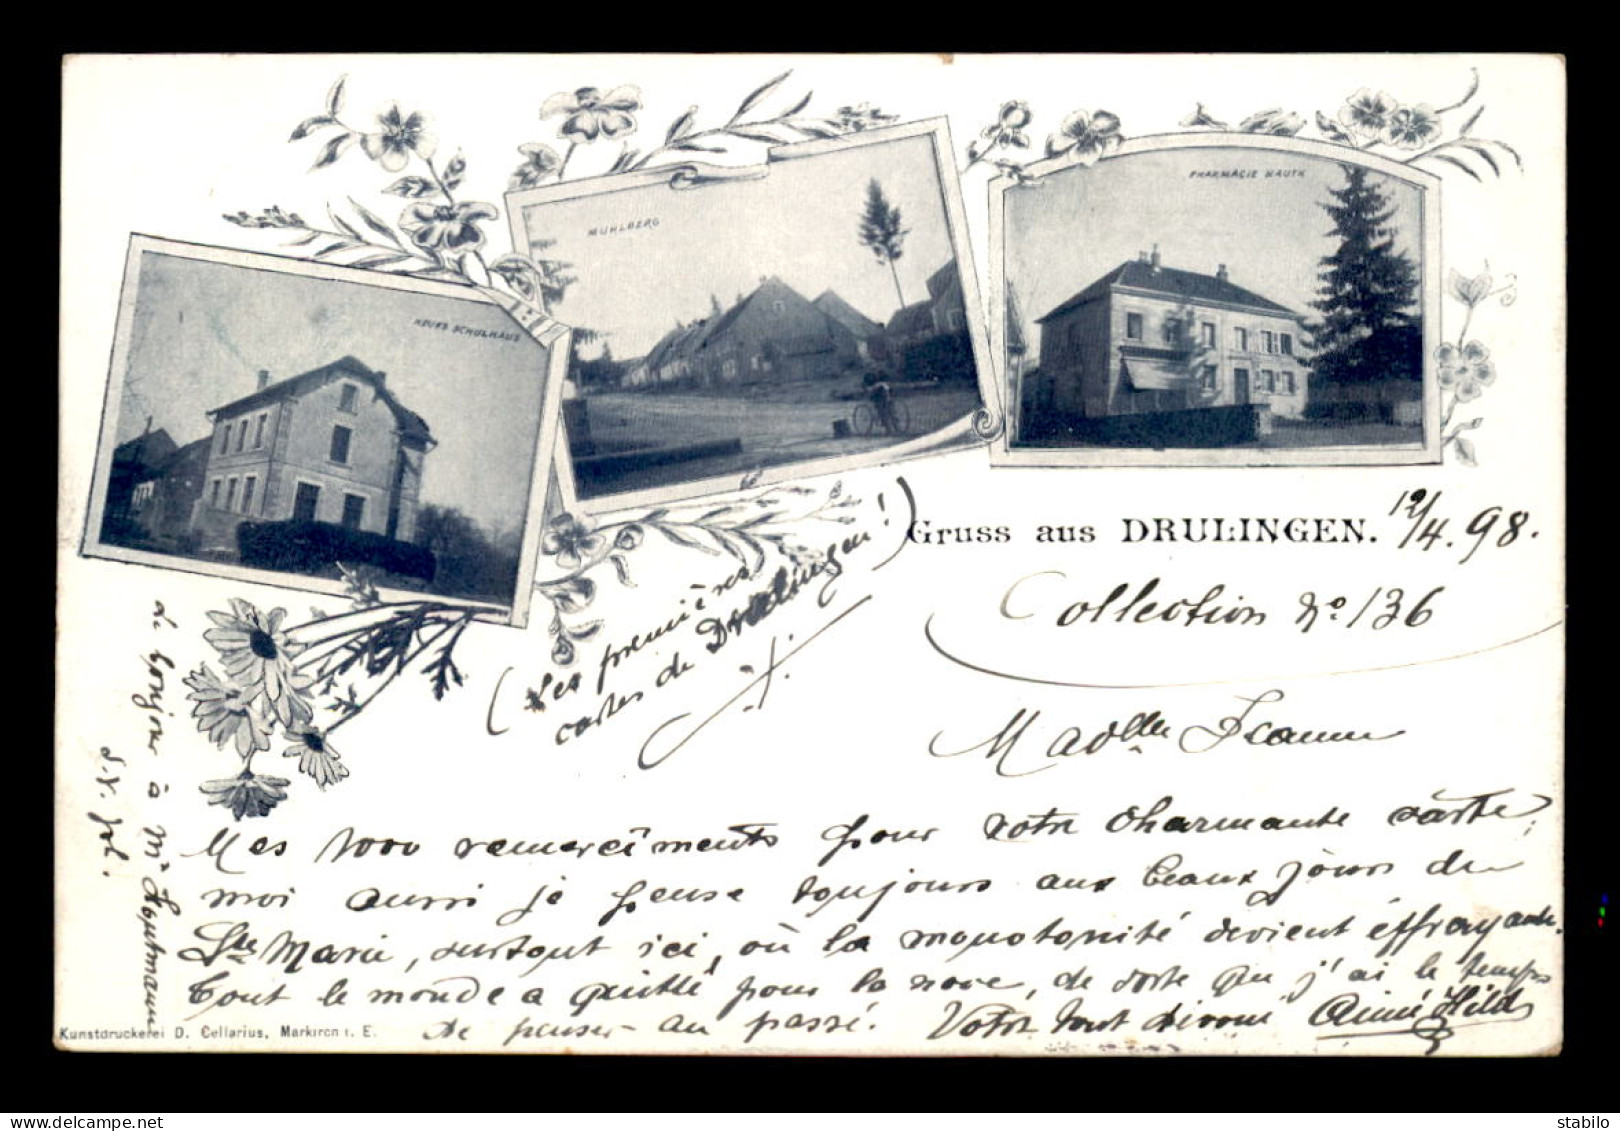 NEUES SCHULHAUS
MUHLBERG
PHARMACIE HAUTH
Gruss aus DRULINGEN. 12/4.98.
(Les premières
cartes de Drulingen!)
Collection No. 136
Madlle Jeanne
Mes 1000 remerciments pour votre charmante carte,
moi aussi je pense toujours aux beaux jours de
Ste Marie, surtout ici, où la monotonité devient éffrayante.
Tout le monde a quitté pour la noce, de sorte que j'ai le temps
de penser au passé. Votre tout dévoué Aimé Hild
le bonjour à Mr Hortmann
s.v.pl.
Kunstdruckerei D. Cellarius, Markirch i. E.
stabilo